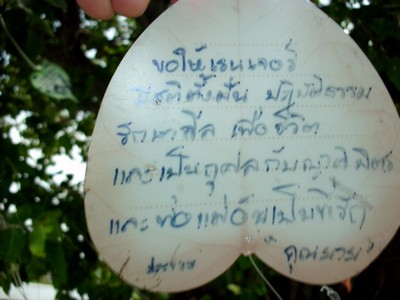 ขอให้เรนเจอร์
มีสติตั้งมั่น ปฏิบัติธรรม
รักษาศีล เพื่อชีวิต
และเป็นกุศลกับญาติมิตร
และพ่อแม่อันเป็นที่รัก
คุณยาย